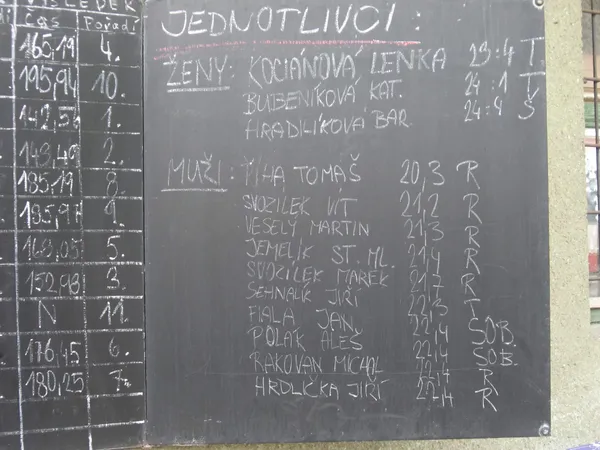 VÝSLEDEK
Čas Pořadí
165,19 4.
195,94 10.
142,54 1.
148,49 2.
185,19 8.
185,97 9.
163,05 5.
152,98 3.
N 11.
176,45 6.
180,25 7.
JEDNOTLIVCI:
ŽENY: KOCIANOVÁ LENKA 23:4 T
BUBENÍKOVÁ KAT. 24:1 T
HRADILÍKOVÁ BAR. 24:4 Š
MUŽI: ŘÍHA TOMÁŠ 20,3 R
SVOZILEK VÍT 21,2 R
VESELÝ MARTIN 21,3 R
JEMELÍK ST. ML. 21,4 R
SVOZILEK MAREK 21,7 R
SEHNALÍK JIŘÍ 22,3 T
FIALA JAN 22,4 SOB.
POLÁK ALEŠ 22,4 SOB.
RAKOVAN MICHAL 22,4 R
HRDLIČKA JIŘÍ 22,4 R